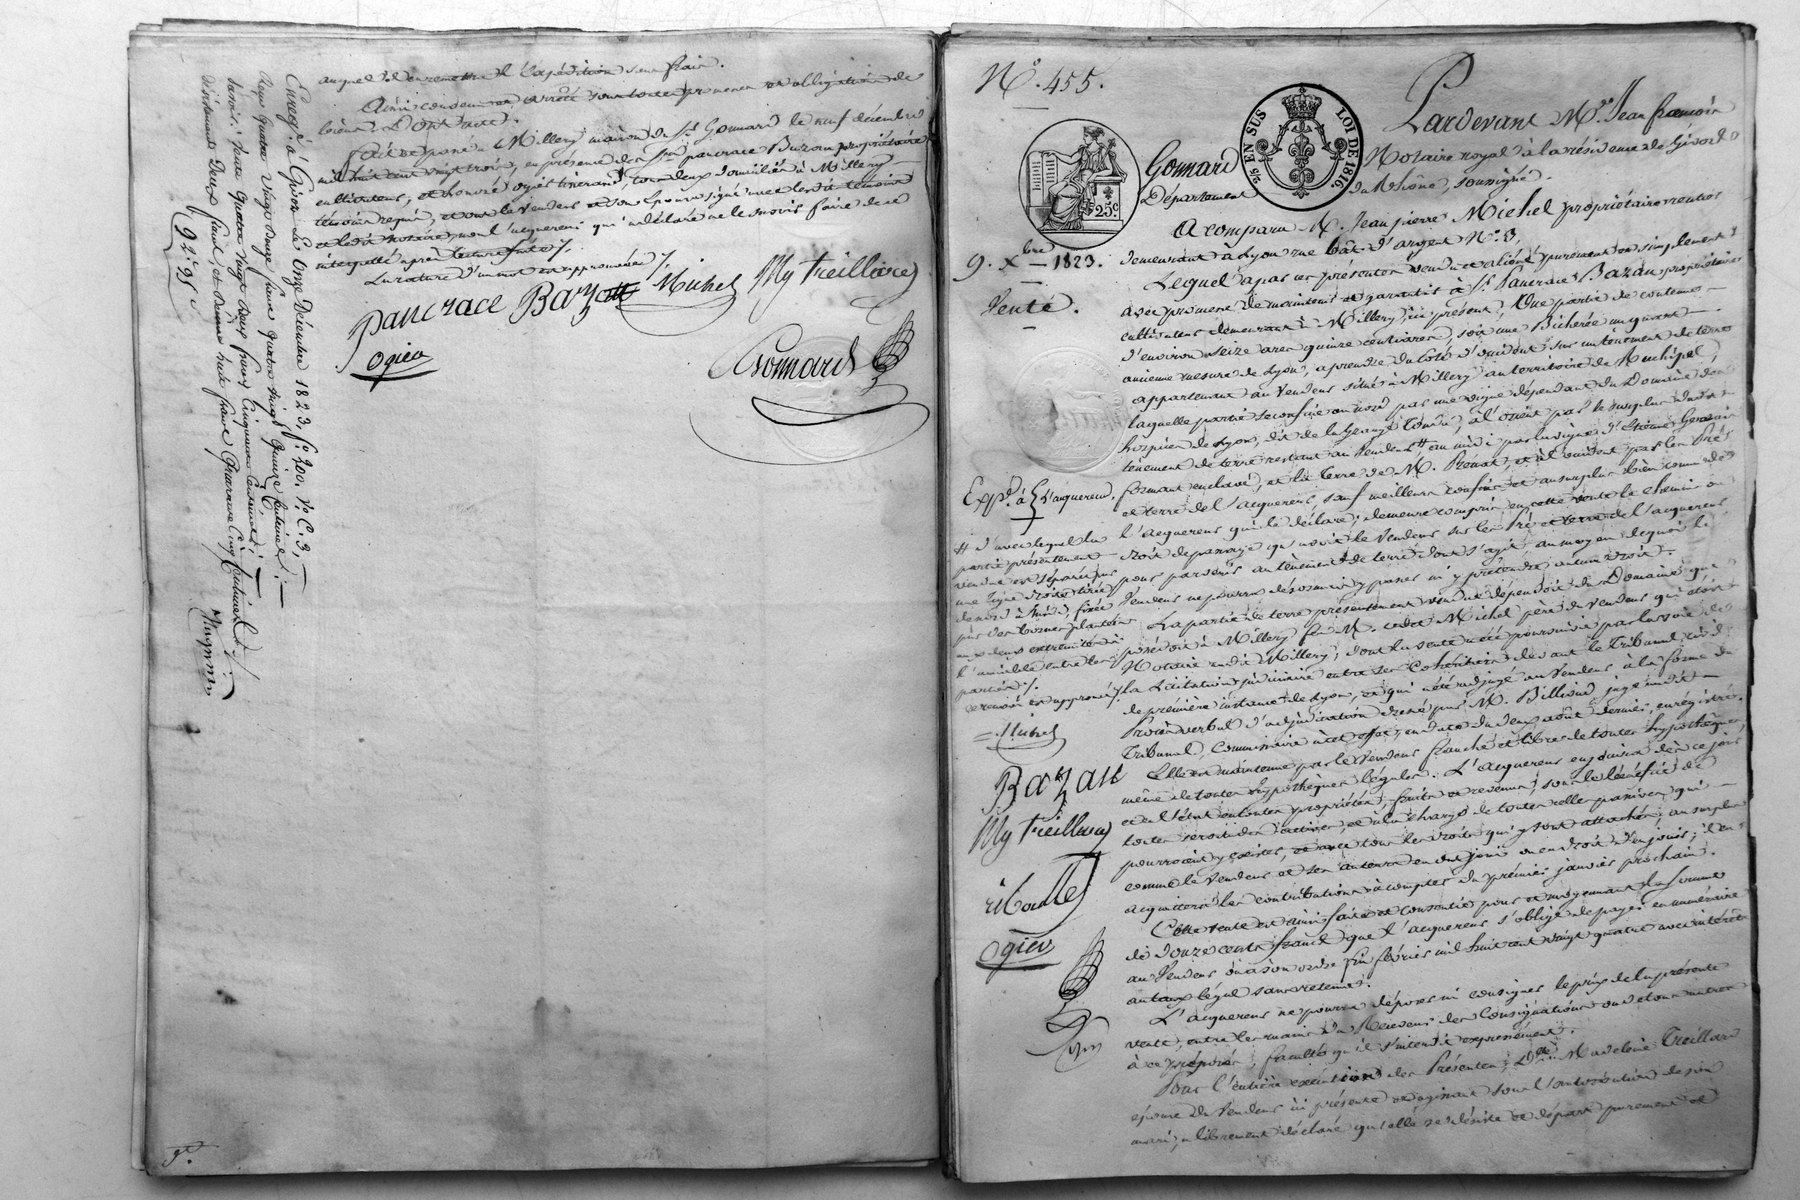 auquel il en remettra l'expédition sans frais.
Ainsi convenu et arrêté sous toutes promesses et obligations de
biens. Dont acte.
Fait et passé à Millery maison de Sr. Gonnard le neuf décembre
mil huit cent vingt trois, en présence des Srs pancrace propriétaire
cultivateur, et honoré ogier tisserand, tous deux domiciliés à Millery
témoins requis, et ont le vendeur et son épouse signé avec lesdits témoins
et ledit notaire, non l'acquereur qui a déclaré ne le savoir faire de ce
interpellé après lecture faite /.
La rature d'un mot est approuvée /.
Pancrace Bazatt Michel My Treillard
ogier
Gonnard
Enreg. à Givors Le Onze Décembre 1823. fo. 200. Vo C. 3.
Reçu quatre vingt douze francs quatre vingt quinze centimes.
Savoir: quatre vingt deux francs cinquante centimes
Deux francs et dixième huit francs quarante cinq centimes /.
92f 95c
9e.
No. 455.
Pardevant Me. Jean francois
Gonnard Notaire royal à la résidence de Givors
Département du Rhône, soussigné.
25 EN SUS LOI DE 1816
25c
A comparu M. Jean pierre Michel propriétaire rentier
demeurant à Lyon rue bât d'argent No. 3,
9. Xbre 1823.
Vente.
Lequel a par ces présentes vendu et aliéné purement et simplement
avec promesse de maintenir et garantir à Sr. Pancrace Bazau propriétaire
cultivateur demeurant à Millery ici présent, Une partie de contenue
d'environ seize ares quinze centiares, soit une Bicherée un quart
ancienne mesure de Lyon, à prendre du côté d'occident sur un tenement de terre
appartenant au vendeur situé à Millery au territoire de
laquelle partie se confine au nord par une vigne dépendant du Domaine des
hospices de Lyon, dit de la Grange à l'orient par le surplus dudit
tenement de terre restant au vendeur # au midi par la vigne d'Etienne
formant enclave, et la terre de M. et à l'occident par les prés
Expd. à l'acquereur.
et terre de l'acquereur, sauf meilleurs confins et au surplus bien connu de
l'acquereur qui le déclare; demeure compris en cette vente le chemin ou
droit de passage qu'avoit le vendeur sur les Pré et terre de l'acquereur
pour parvenir au tenement de terre dont s'agit, au moyen de quoi le
Vendeur ne pourra désormais y passer ni y prétendre aucun droit.
# d'avec lequel la
partie présentement
vendue est séparée par
une ligne droite tirée
de nord à midi, fixée
par des bornes plantées
aux deux extremités à
l'amiable entre les
parties /.
ce renvoi est approuvé /.
Michel
Bazatt
My Treillard
riboulle
ogier
La partie de terre présentement vendue dépendoit du Domaine que
possédoit à Millery feu M. Michel père du vendeur qui étoit
Notaire audit Millery, dont la vente a été poursuivie par la voie de
la Licitation judiciaire entre ses Cohéritiers devant le Tribunal civil
de première instance de Lyon, et qui a été adjugé au Vendeur à la forme du
Procès verbal d'adjudication dressé par M. Billioud juge audit
Tribunal, Commissaire à cet effet, en date du deux août dernier, enregistré.
Elle est maintenue par le Vendeur franche et libre de toutes hypothèques,
même de toutes hypothèques légales. L'acquereur en jouira dès ce jour
et en l'état en toutes propriétés, fruits et revenus, sous le bénéfice de
toutes servitudes actives, et à la charge de toutes celles passives, qui
pourroient y exister, et avec tous les droits qui y sont attachés, au surplus
comme le Vendeur et ses auteurs en ont joui ou eu droit d'en jouir; il en
acquittera les contributions à compter du prémier janvier prochain.
Cette vente est ainsi faite et consentie pour et moyennant la somme
de Douze cents francs que l'acquereur s'oblige de payer en numéraire
au Vendeur ou à son ordre fin février mil huit cent vingt quatre avec intérêts
au taux légal sans retenue.
L'acquereur ne pourra déposer ni consigner le prix de la présente
vente, entre les mains d'un Receveur des Consignations ou de tous autres
à ce préposés, faculté qu'il s'interdit expressément.
Pour l'entière exécution des Présentes, De. Madeleine Treillard
épouse du Vendeur ici présente et agissant sous l'autorisation de son
mari, a librement déclaré qu'elle se désiste et départ purement et